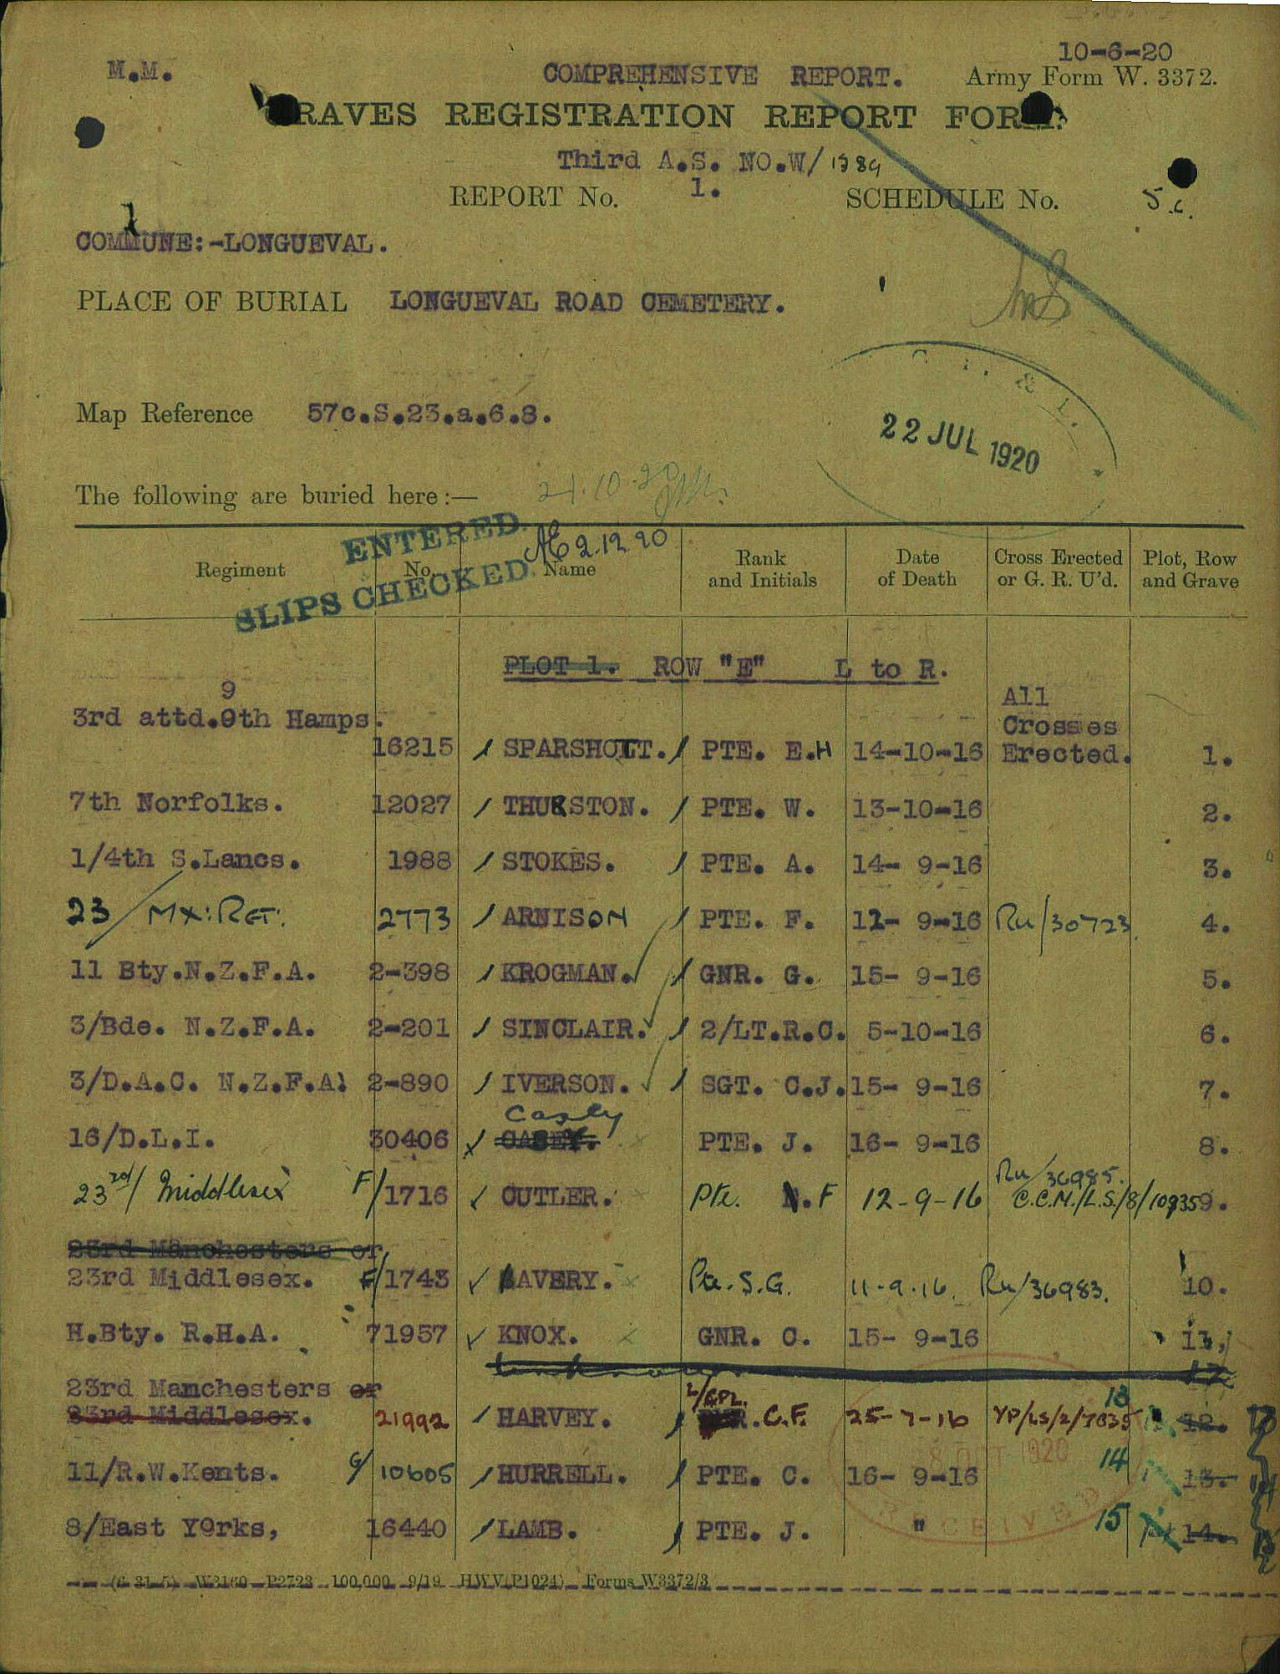 10-6-20
M.M. COMPREHENSIVE REPORT. Army Form W. 3372.
GRAVES REGISTRATION REPORT FORM.
Third A.S. NO.W/1389
REPORT No. 1. SCHEDULE No. 5.c.
COMMUNE:-LONGUEVAL.
PLACE OF BURIAL LONGUEVAL ROAD CEMETERY.
Map Reference 57c.S.23.a.6.8.
22 JUL 1920
The following are buried here :—
ENTERED. 2.12.20
SLIPS CHECKED.
Regiment No. Name Rank and Initials Date of Death Cross Erected or G. R. U'd. Plot, Row and Grave
PLOT 1. ROW "E" L to R.
9
3rd attd.9th Hamps. All Crosses Erected.
16215 SPARSHOTT. PTE. E.H 14-10-16 1.
7th Norfolks. 12027 THURSTON. PTE. W. 13-10-16 2.
1/4th S.Lancs. 1988 STOKES. PTE. A. 14- 9-16 3.
23/MX:RGT: 2773 ARNISON PTE. F. 12- 9-16 Ru/30723. 4.
11 Bty.N.Z.F.A. 2-398 KROGMAN. GNR. G. 15- 9-16 5.
3/Bde. N.Z.F.A. 2-201 SINCLAIR. 2/LT.R.C. 5-10-16 6.
3/D.A.C. N.Z.F.A. 2-890 IVERSON. SGT. C.J. 15- 9-16 7.
Casly
16/D.L.I. 30406 CASEY. PTE. J. 16- 9-16 8.
Ru/36985.
23rd/ Middlesex F/1716 CUTLER. Pte. N.F 12-9-16 C.C.M./L.S./8/10935 9.
23rd Manchesters or
23rd Middlesex. F/1743 AVERY. Pte. S.G. 11-9-16. Ru/36983. 10.
H.Bty. R.H.A. 71957 KNOX. GNR. C. 15- 9-16 11.
Unknown 12
23rd Manchesters or L/CPL. 13
23rd Middlesex. 21992 HARVEY. C.F. 25-7-16 VP/LS/2/7835 12. 13
8 OCT 1920
11/R.W.Kents. G/10605 HURRELL. PTE. C. 16- 9-16 14 13. 14
RECEIVED
8/East Y9rks, 16440 LAMB. PTE. J. " 15 14. 15
(6 31 5) W3160 P2723 100,000 9/19 H W V(P1024) Forms W3372/3